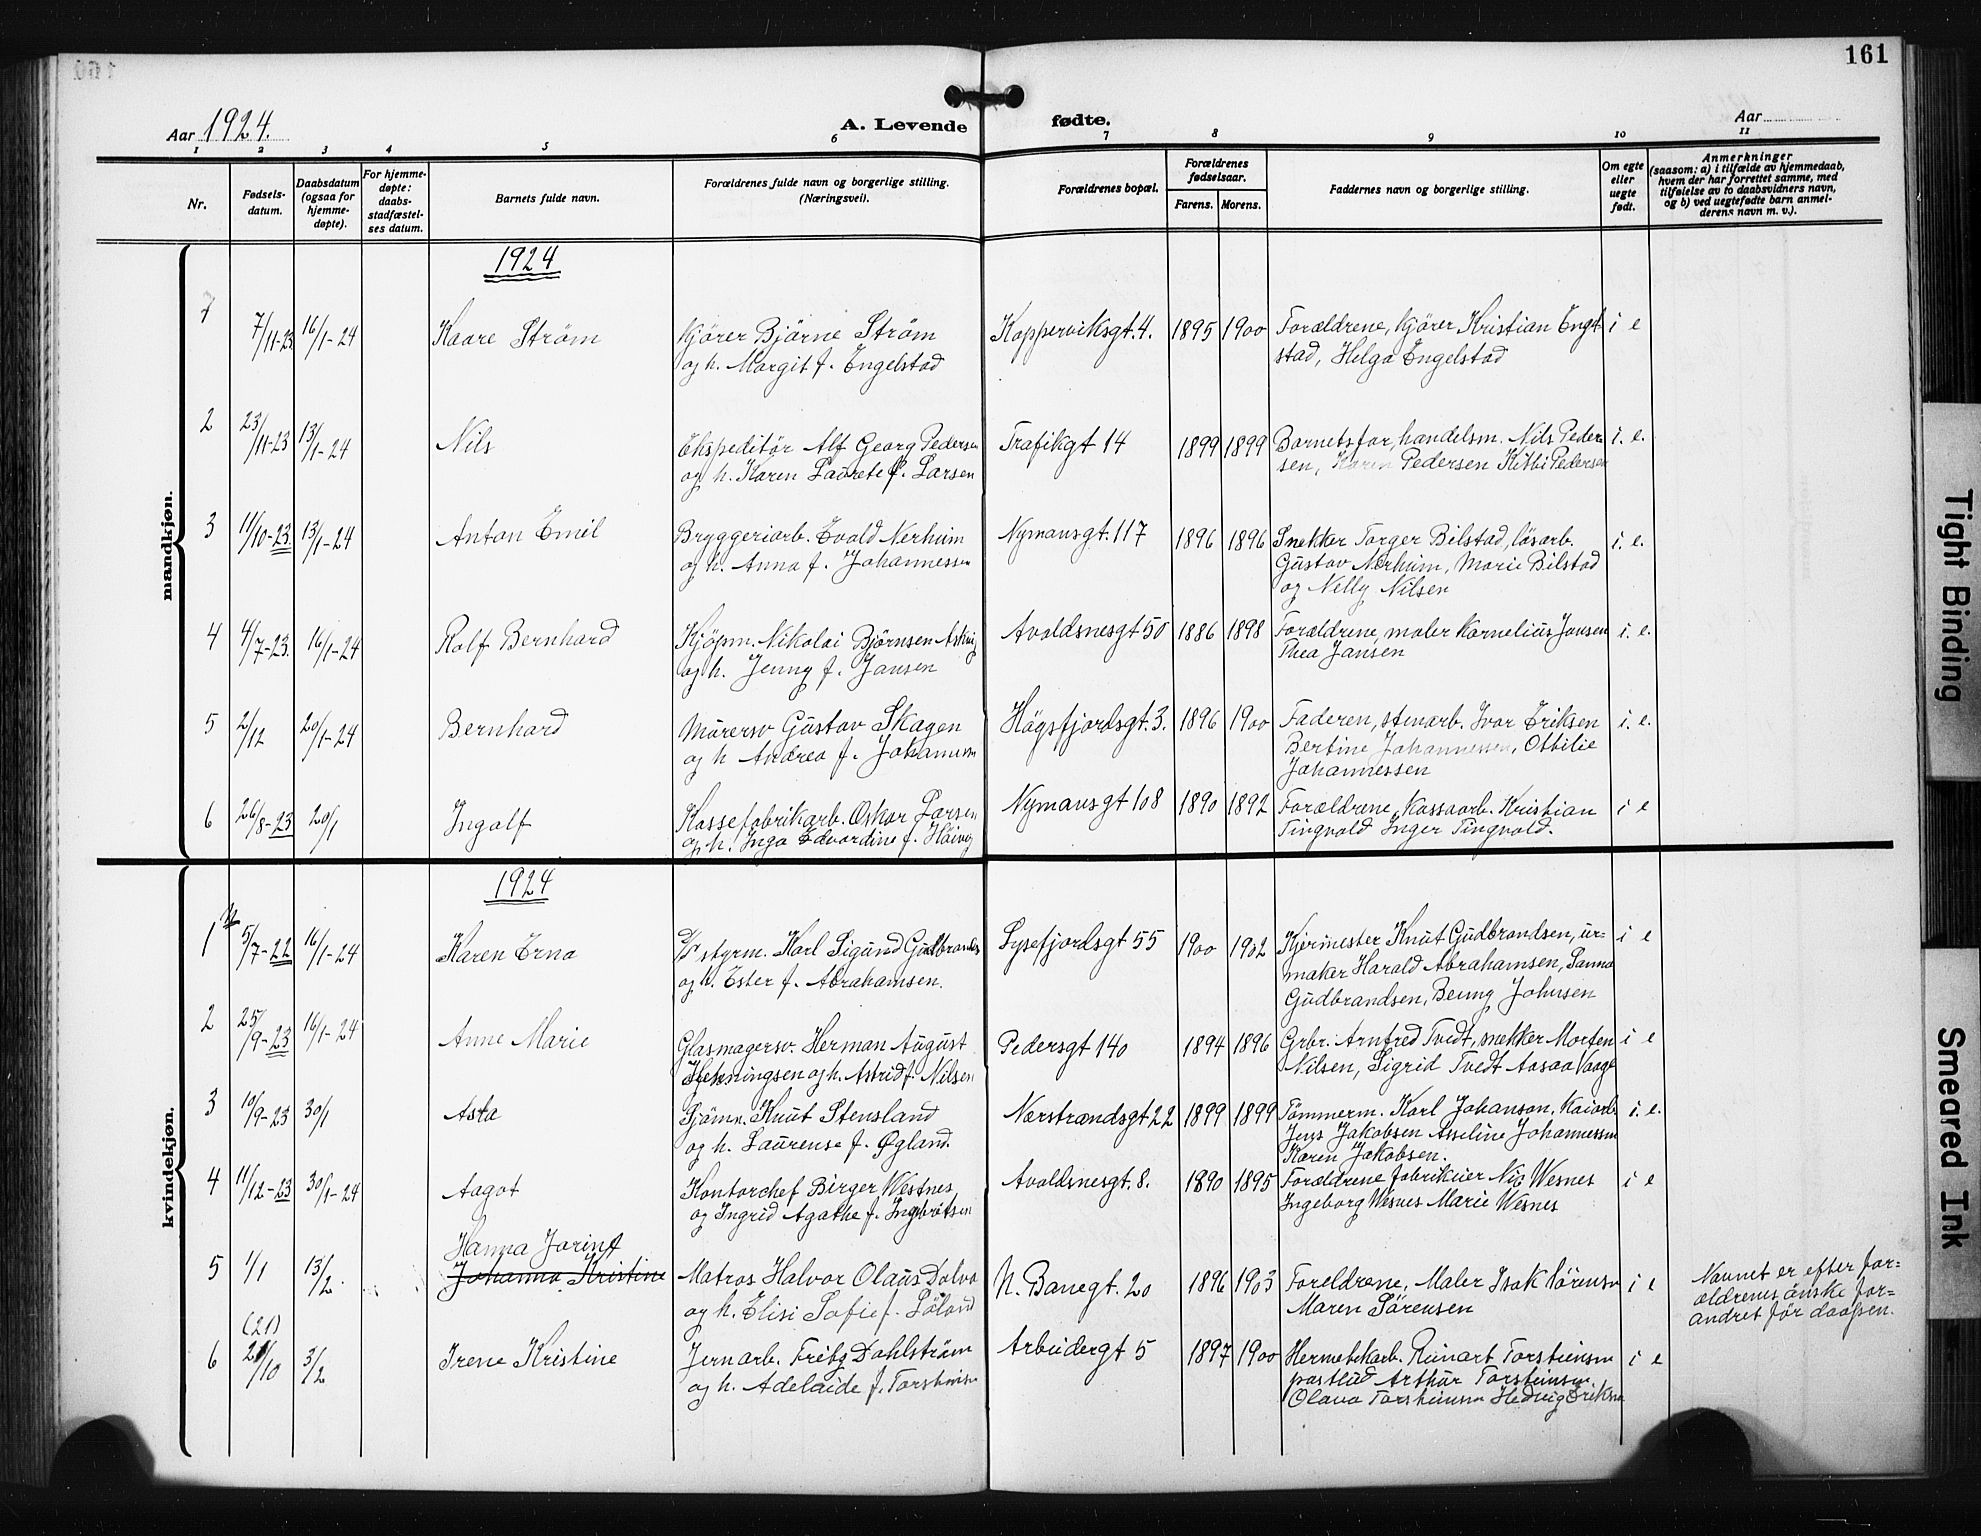 161
Aar 1924.
A. Levende fødte.
Aar
1 2 3 4 5 6 7 8 9 10 11
Nr.
Fødsels-
datum.
Daabsdatum
(ogsaa for
hjemme-
døpte).
For hjemme-
døpte:
daabs-
stadfæstel-
ses datum.
Barnets fulde navn.
Forældrenes fulde navn og borgerlige stilling.
(Næringsvei).
Forældrenes bopæl.
Forældrenes
fødselsaar.
Farens. Morens.
Faddernes navn og borgerlige stilling.
Om egte
eller
uegte
født.
Anmerkninger
(saasom: a) i tilfælde av hjemmedaab,
hvem der har forrettet samme, med
tilføielse av to daabsvidners navn,
og b) ved uegtefødte barn anmel-
derens navn m. v.).
mandkjøn.
1924
1 7/11-23 16/1-24 Kaare Strøm Kjører Bjarne Strøm Kopperviksgt. 4. 1895 1900 Forældrene, kjører Kristian Engel i e
og h. Margit f. Engelstad stad, Helga Engelstad
2 23/11-23 13/1-24 Nils Ekspeditør Alf Georg Pedersen Trafikgt 14 1899 1899 Barnets far, handelsm. Nils Peder i. e.
og h. Karen Laurete f. Larsen sen, Karen Pedersen Kitbi Pedersen
3 11/10-23 13/1-24 Anton Emil Bryggeriarb. Evald Nerheim Nymansgt. 117 1896 1896 Snekker Torger Bilstad, løsarb. i. e.
og h. Anna f. Johannessen Gustav Nerheim, Marie Bilstad
og Nelly Nilsen
4 4/7-23. 16/1-24 Rolf Bernhard Kjøpm. Nikolai Bjørnsen Askvig Avaldsnesgt 50 1886 1898 Forældrene, maler Kornelius Jansen i. e.
og h. Jenny f. Jansen Thea Jansen
5 2/12 20/1-24 Bernhard Murersv Gustav Skagen Høgsfjordsgt. 3. 1896 1900 Faderen, stenarb. Ivar Eriksen i. e.
og h Andrea f. Johannessen Bertine Johannessen, Ottilie
Johannessen
6 26/8-23 20/1 Ingolf Kassefabrikarb. Oskar Larsen Nymansgt 108 1890 1892 Forældrene, kassaarb. Kristian i e
og h. Inga Edvardine f. Høivig Tingvold Inger Tingvold.
kvindekjøn.
1924
1 5/7-22 16/1-24 Karen Erna styrm. Karl Sigund Gudbrandsen Lysefjordsgt 55 1900 1902 Kjørmester Knut Gudbrandsen, ur- i e
og h. Ester f. Abrahamsen. maker Harald Abrahamsen, Sanna
Gudbrandsen, Benny Johnsen
2 25/9-23 16/1-24 Anne Marie Glasmagersv. Herman August Pedersgt 140 1894 1896 Grbr. Arnfred Tvedt, snekker Morten i e
Henningsen og h. Astrid f. Nilsen Nilsen, Sigrid Tvedt Aasaa Vaage
3 10/9-23 30/1 Asta Sjöm. Knut Stensland Nærstrandsgt 22 1899 1899 Tømmerm. Karl Johanson, Kaiarb. i. e.
og h. Laurense f. Øgland. Jens Jakobsen Asseline Johannessen
Karen Jakobsen.
4 11/12-23 30/1-24 Aagot Kontorchef Birger Westnes Avaldsnesgt. 8. 1890 1895 Forældrene fabrikeier Nic Wesnes i e
og Ingrid Agathe f. Ingebretsen Ingeborg Wesnes Marie Wesnes
Hanna Jorine
5 1/1 13/2. Johanna Kristine Matros Halvor Olaus Dalva N. Banegt. 20 1896 1903 Foreldrene, Maler Isak Sørensen i e
og h. Elisi Sofie f. Løland Maren Sørensen
Navnet er efter for-
ældrenes ønske for-
andret før daapen.
(21)
6 21/10 3/2 Irene Kristine Jernarb. Fritz Dahlstrøm Arbeidergt 5 1897 1900 Hermetikarb. Reinart Torsteinsen i e
og h. Adelaide f. Torsteinsen postbud Arthur Torsteinsen,
Olava Torsteinsen Hedvig Eriksen
Tight Binding
Smeared Ink